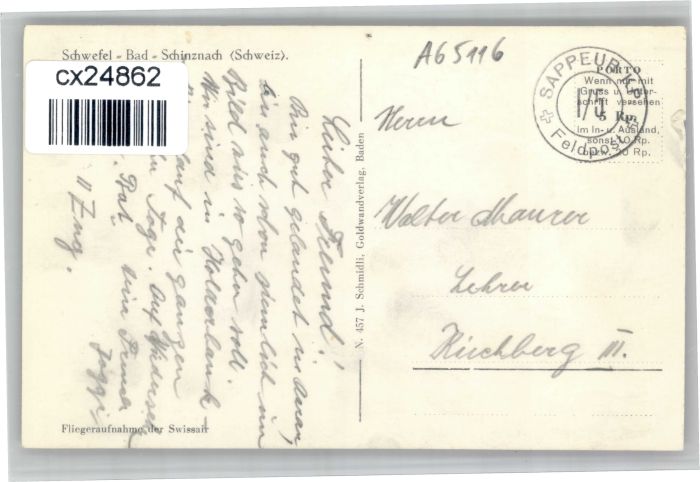 Schwefel - Bad - Schinznach (Schweiz).
cx24862
A65116
SAPPEUR
I/5
Feldpost
PORTO
Wenn nur mit
Gruss u. Unter-
schrift versehen
5 Rp.
im In- u. Ausland,
sonst 10 Rp.
20 Rp.
Lieber Freund!
Bin gut gelandet in
bin auch schon ziemlich im
Bild wies so gehn soll.
Wir sind in Holderbank
auf die ganzen
Tage. Auf Wiederseh
Bat.
II Zug.
N. 457 J. Schmidli, Goldwandverlag, Baden
Herrn
Walter Maurer
Lehrer
Kirchberg III.
Fliegeraufnahme der Swissair